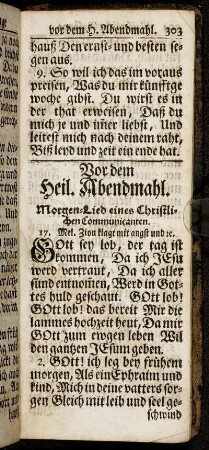 vor dem H. Abendmahl. 303
hauß Den erast- und besten se-
gen aus.
9. So will ich das im voraus
preisen, Was du mir künfftge
woche gibst. Du wirst es in
der that erweisen, Daß du
mich je und im̃er liebst, Und
leitest mich nach deinem raht,
Biß leyd und zeit ein ende hat.
Vor dem
Heil. Abendmahl.
Morgen-Lied eines Christli-
chen Communicanten.
17. Mel. Zion klagt mit angst und ꝛc.
GOtt sey lob, der tag ist
kommen, Da ich JEsu
werd vertraut, Da ich aller
sünd entnom̃en, Werd in Got-
tes huld geschaut. GOtt lob!
GOtt lob! das bereit Mir die
lammes hochzeit heut, Da mir
GOtt zum ewgen leben Wil
den gantzen JEsum geben.
2. GOtt! ich log bey frühem
morgen, Als ein Ephraim und
kind, Mich in deine vatters sor-
gen Gleich mit leib und seel ge-
schwind